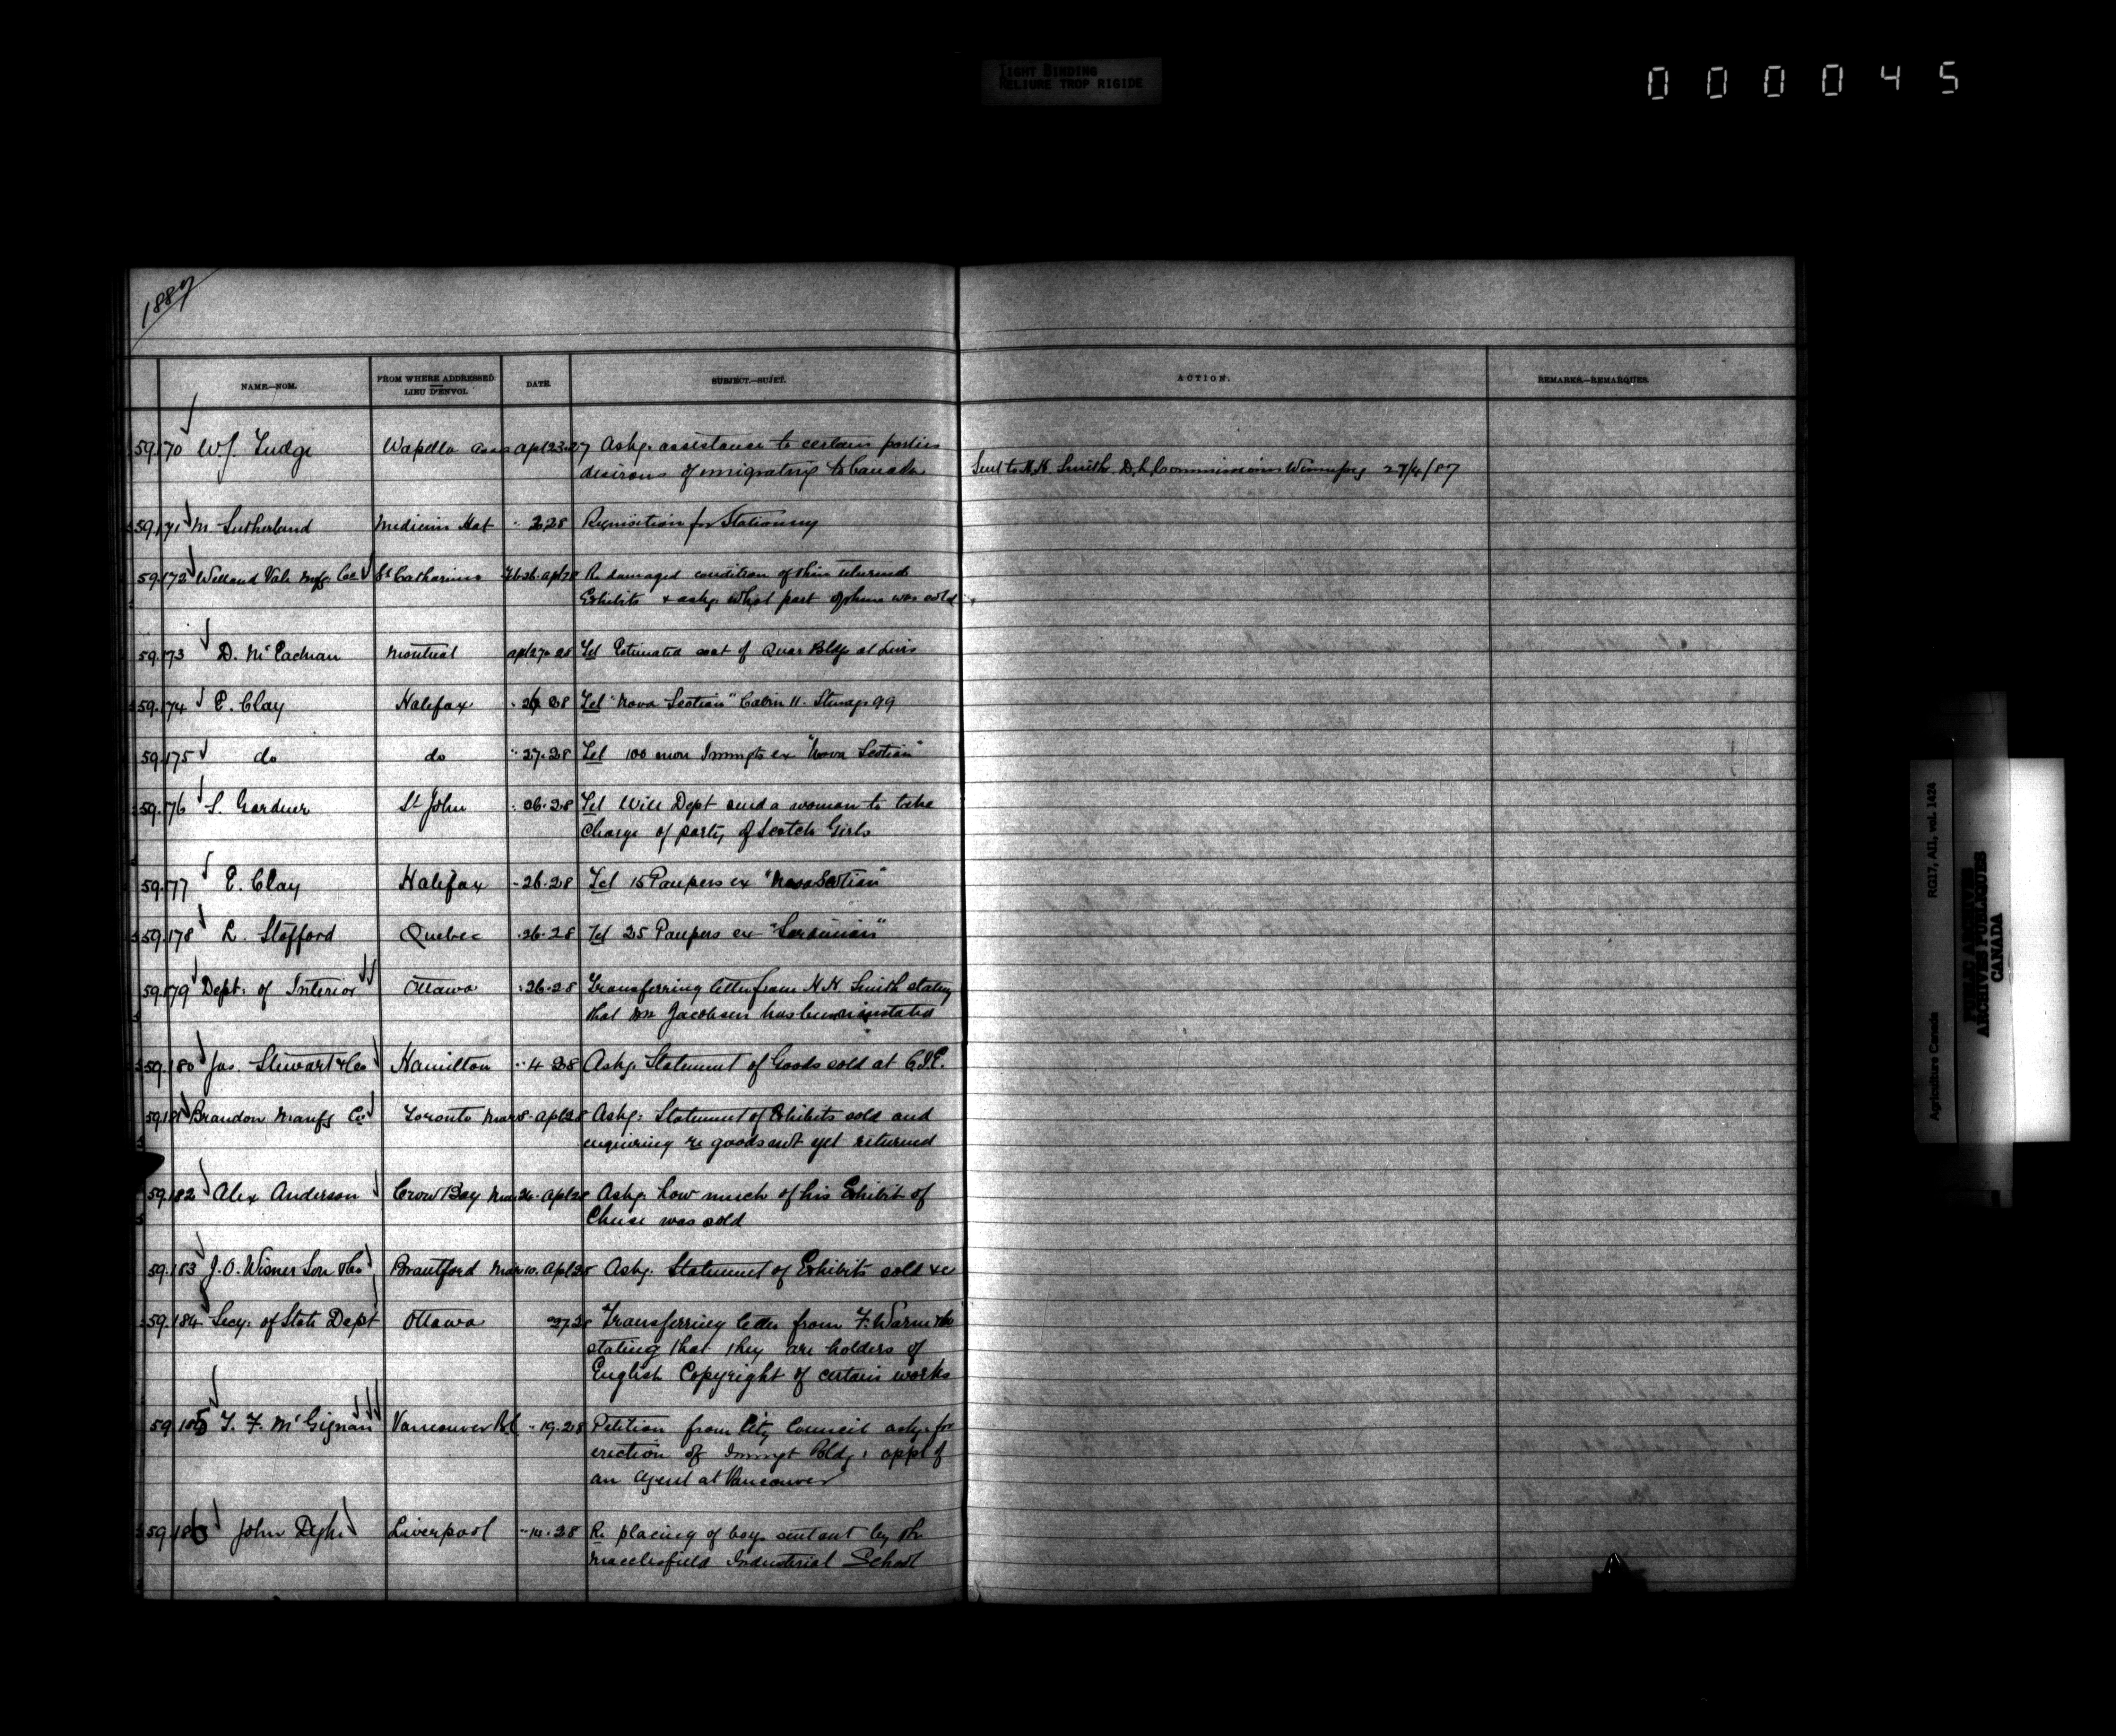 TIGHT BINDING
RELIURE TROP RIGIDE
000045
1887
NAME.—NOM. FROM WHERE ADDRESSED. LIEU D'ENVOI. DATE. SUBJECT.—SUJET. ACTION. REMARKS.—REMARQUES.
59.170 W.J. Tudge Wapella Assa Apl 23.27 Askg. assistance to certain parties
desirous of emigrating to Canada Sent to H.H. Smith D.L. Commissioner Winnipeg 27/4/87
59.171 M. Sutherland Medicine Hat " 2.28 Requisition for Stationery
59.172 Welland Vale Mfg. Co. St Catharines Feb 26. Apl 28 Re damaged condition of their returned
Exhibits & askg. what part of them was sold
59.173 D. McEachran Montreal Apl 27.28 Tel Estimated cost of Quar Bldgs at Levis
59.174 E. Clay Halifax 28 Tel "Nova Scotian" Cabin 11. Steerage 99
59.175 do do " 27.28 Tel 100 more Immgts ex "Nova Scotian"
59.176 S. Gardner St John 26.28 Tel Will Dept send a woman to take
charge of party of Scotch Girls
59.177 E. Clay Halifax " 26.28 Tel 15 Paupers ex "Nova Scotian"
59.178 L. Stafford Quebec " 26.28 Tel 25 Paupers ex "Sardinian"
59.179 Dept. of Interior Ottawa " 26.28 Transferring letter from H.H. Smith stating
that Mr Jacobsen has been reinstated
59.180 Jas. Stewart & Co Hamilton " 4 28 Askg. Statement of Goods sold at C.I.E.
59.181 Brandon Manfg Co. Toronto Mar 8. Apl 28 Askg: Statement of Exhibits sold and
enquiring re goods not yet returned
59.182 Alex Anderson Crow Bay Mar 24. Apl 28 Askg. how much of his Exhibit of
Cheese was sold
59.183 J.O. Wisner Son & Co Brantford Mar 10. Apl 28 Askg. Statement of Exhibits sold &c
59.184 Secy: of State Dept Ottawa 27.28 Transferring letter from F. Warne & Co
stating that they are holders of
English Copyright of certain works
59.185 T. F. McGignan Vancouver B.C. " 19.28 Petition from City Council askg. for
erection of Immgt Bldg: appt of
an Agent at Vancouver
59.186 John Dyke Liverpool " 14.28 Re placing of boys sent out by the
Macclesfield Industrial School
Agriculture Canada RG17, AII, vol. 1424
PUBLIC ARCHIVES
ARCHIVES PUBLIQUES
CANADA